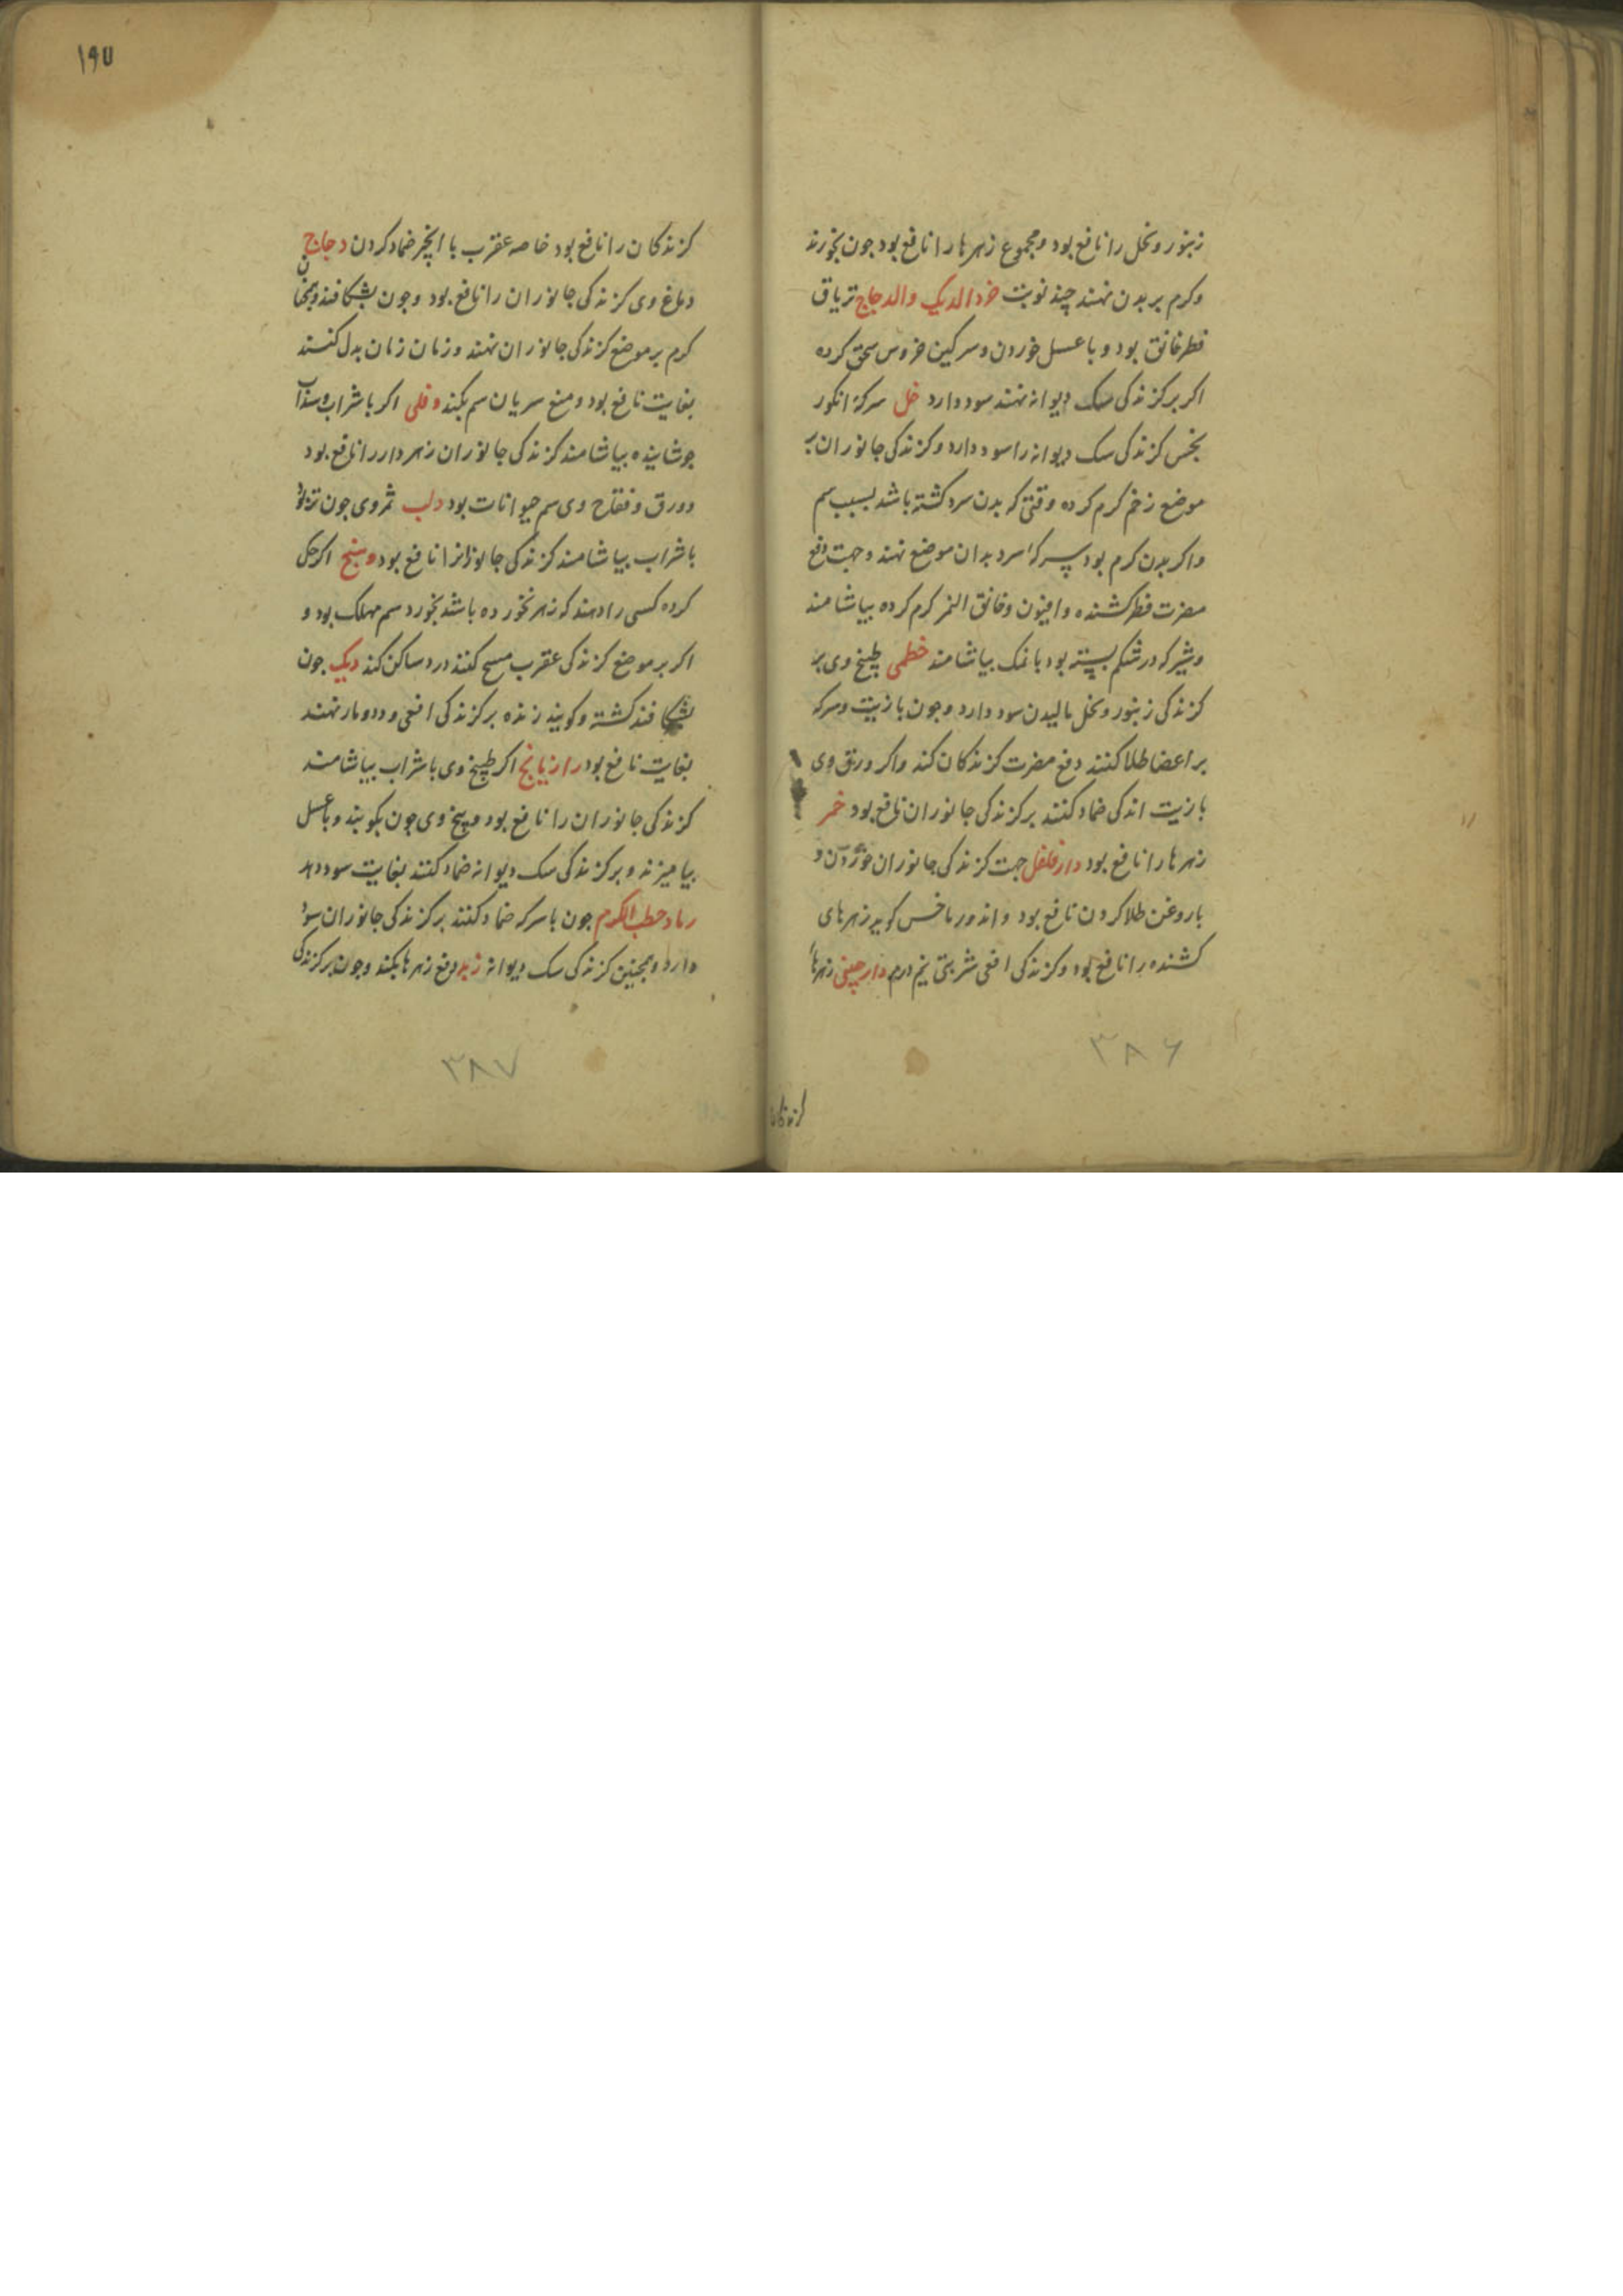 زنبور و نحل را نافع بود و مجموع زهرها را نافع بود جون بخورند
وکرم بر بدن نهند چند نوبت خرء الدیک والدجاج تریاق
فطر خانق بود و با عسل خوردن وسرکین خروس سحق کرده
اکر بر کزندکی سک دیوانه نهند سود دارد خل سرکۀ انکور
بخس کزندکی سک دیوانه را سود دارد وکزندکی جانوران بر
موضع زخم کرم کرده وقتی که بدن سرد کشته باشد بسبب سم
واکر بدن کرم بود سرکۀ سرد بدان موضع نهند وجهت دفع
مضرت فطر کشنده وافیون وخانق النمر کرم کرده بیاشامند
وشیر که در شکم بسته بود با نمک بیاشامند خطمی طبیخ وی بر
کزندکی زنبور ونحل مالیدن سود دارد وجون با زیت وسرکه
بر اعضا طلا کنند دفع مضرت کزندکان کند واکر ورق وی
با زیت اندکی ضماد کنند بر کزندکی جانوران نافع بود خمر
زهرها را نافع بود دارفلفل جهت کزندکی جانوران خوردن و
با روغن طلا کردن نافع بود واندوماخس کوید زهرهای
کشنده را نافع بود وکزندکی افعی شربتی نیم درم دارچینی زهرها
کزندکان
۳۸۶
۱۹۷
کزندکان را نافع بود خاصه عقرب با انجیر ضماد کردن دجاج
دماغ وی کزندکی جانوران را نافع بود وجون بشکافند وهمچنان
کرم بر موضع کزندکی جانوران نهند وزمان زمان بدل کنند
بغایت نافع بود ومنع سریان سم بکند دفلی اکر با شراب وسداب
جوشانیده بیاشامند کزندکی جانوران زهردار را نافع بود
وورق وفقاح وی سم حیوانات بود دلب ثمر وی جون تر بود
با شراب بیاشامند کزندکی جانورانرا نافع بود وسخ اکر حک
کرده کسی را دهند که زهر نخورده باشد بخورد سم مهلک بود و
اکر بر موضع کزندکی عقرب مسح کنند درد ساکن کند دیک جون
بشکافند کشته وکویند زنده بر کزندکی افعی و مار نهند
بغایت نافع بود رازیانج اکر طبیخ وی با شراب بیاشامند
کزندکی جانوران را نافع بود وبیخ وی جون بکوبند وبا عسل
بیامیزند وبر کزندکی سک دیوانه ضماد کنند بغایت سود دهد
رماد حطب الکرم جون با سرکه ضماد کنند بر کزندکی جانوران سود
دارد وهمچنین کزندکی سک دیوانه زبد دفع زهرها بکند وجون بر کزندکی
۳۸۷